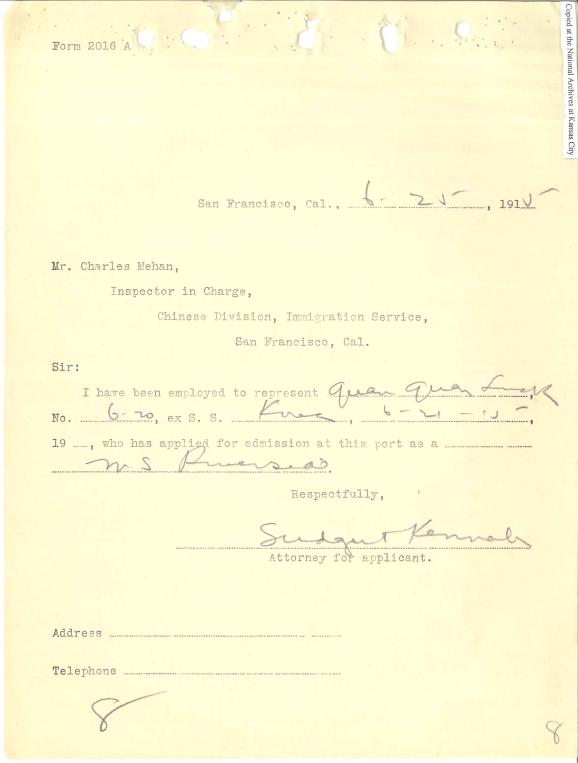 Form 2016 A
Copied at the National Archives at Kansas City
San Francisco, Cal., 6 - 25, 1915
Mr. Charles Mehan,
Inspector in Charge,
Chinese Division, Immigration Service,
San Francisco, Cal.
Sir:
I have been employed to represent Quan Quan
No. 6-20, ex S. S. Korea, 6-21-15,
19 , who has applied for admission at this port as a
Respectfully,
Attorney for applicant.
Address
Telephone
8
8